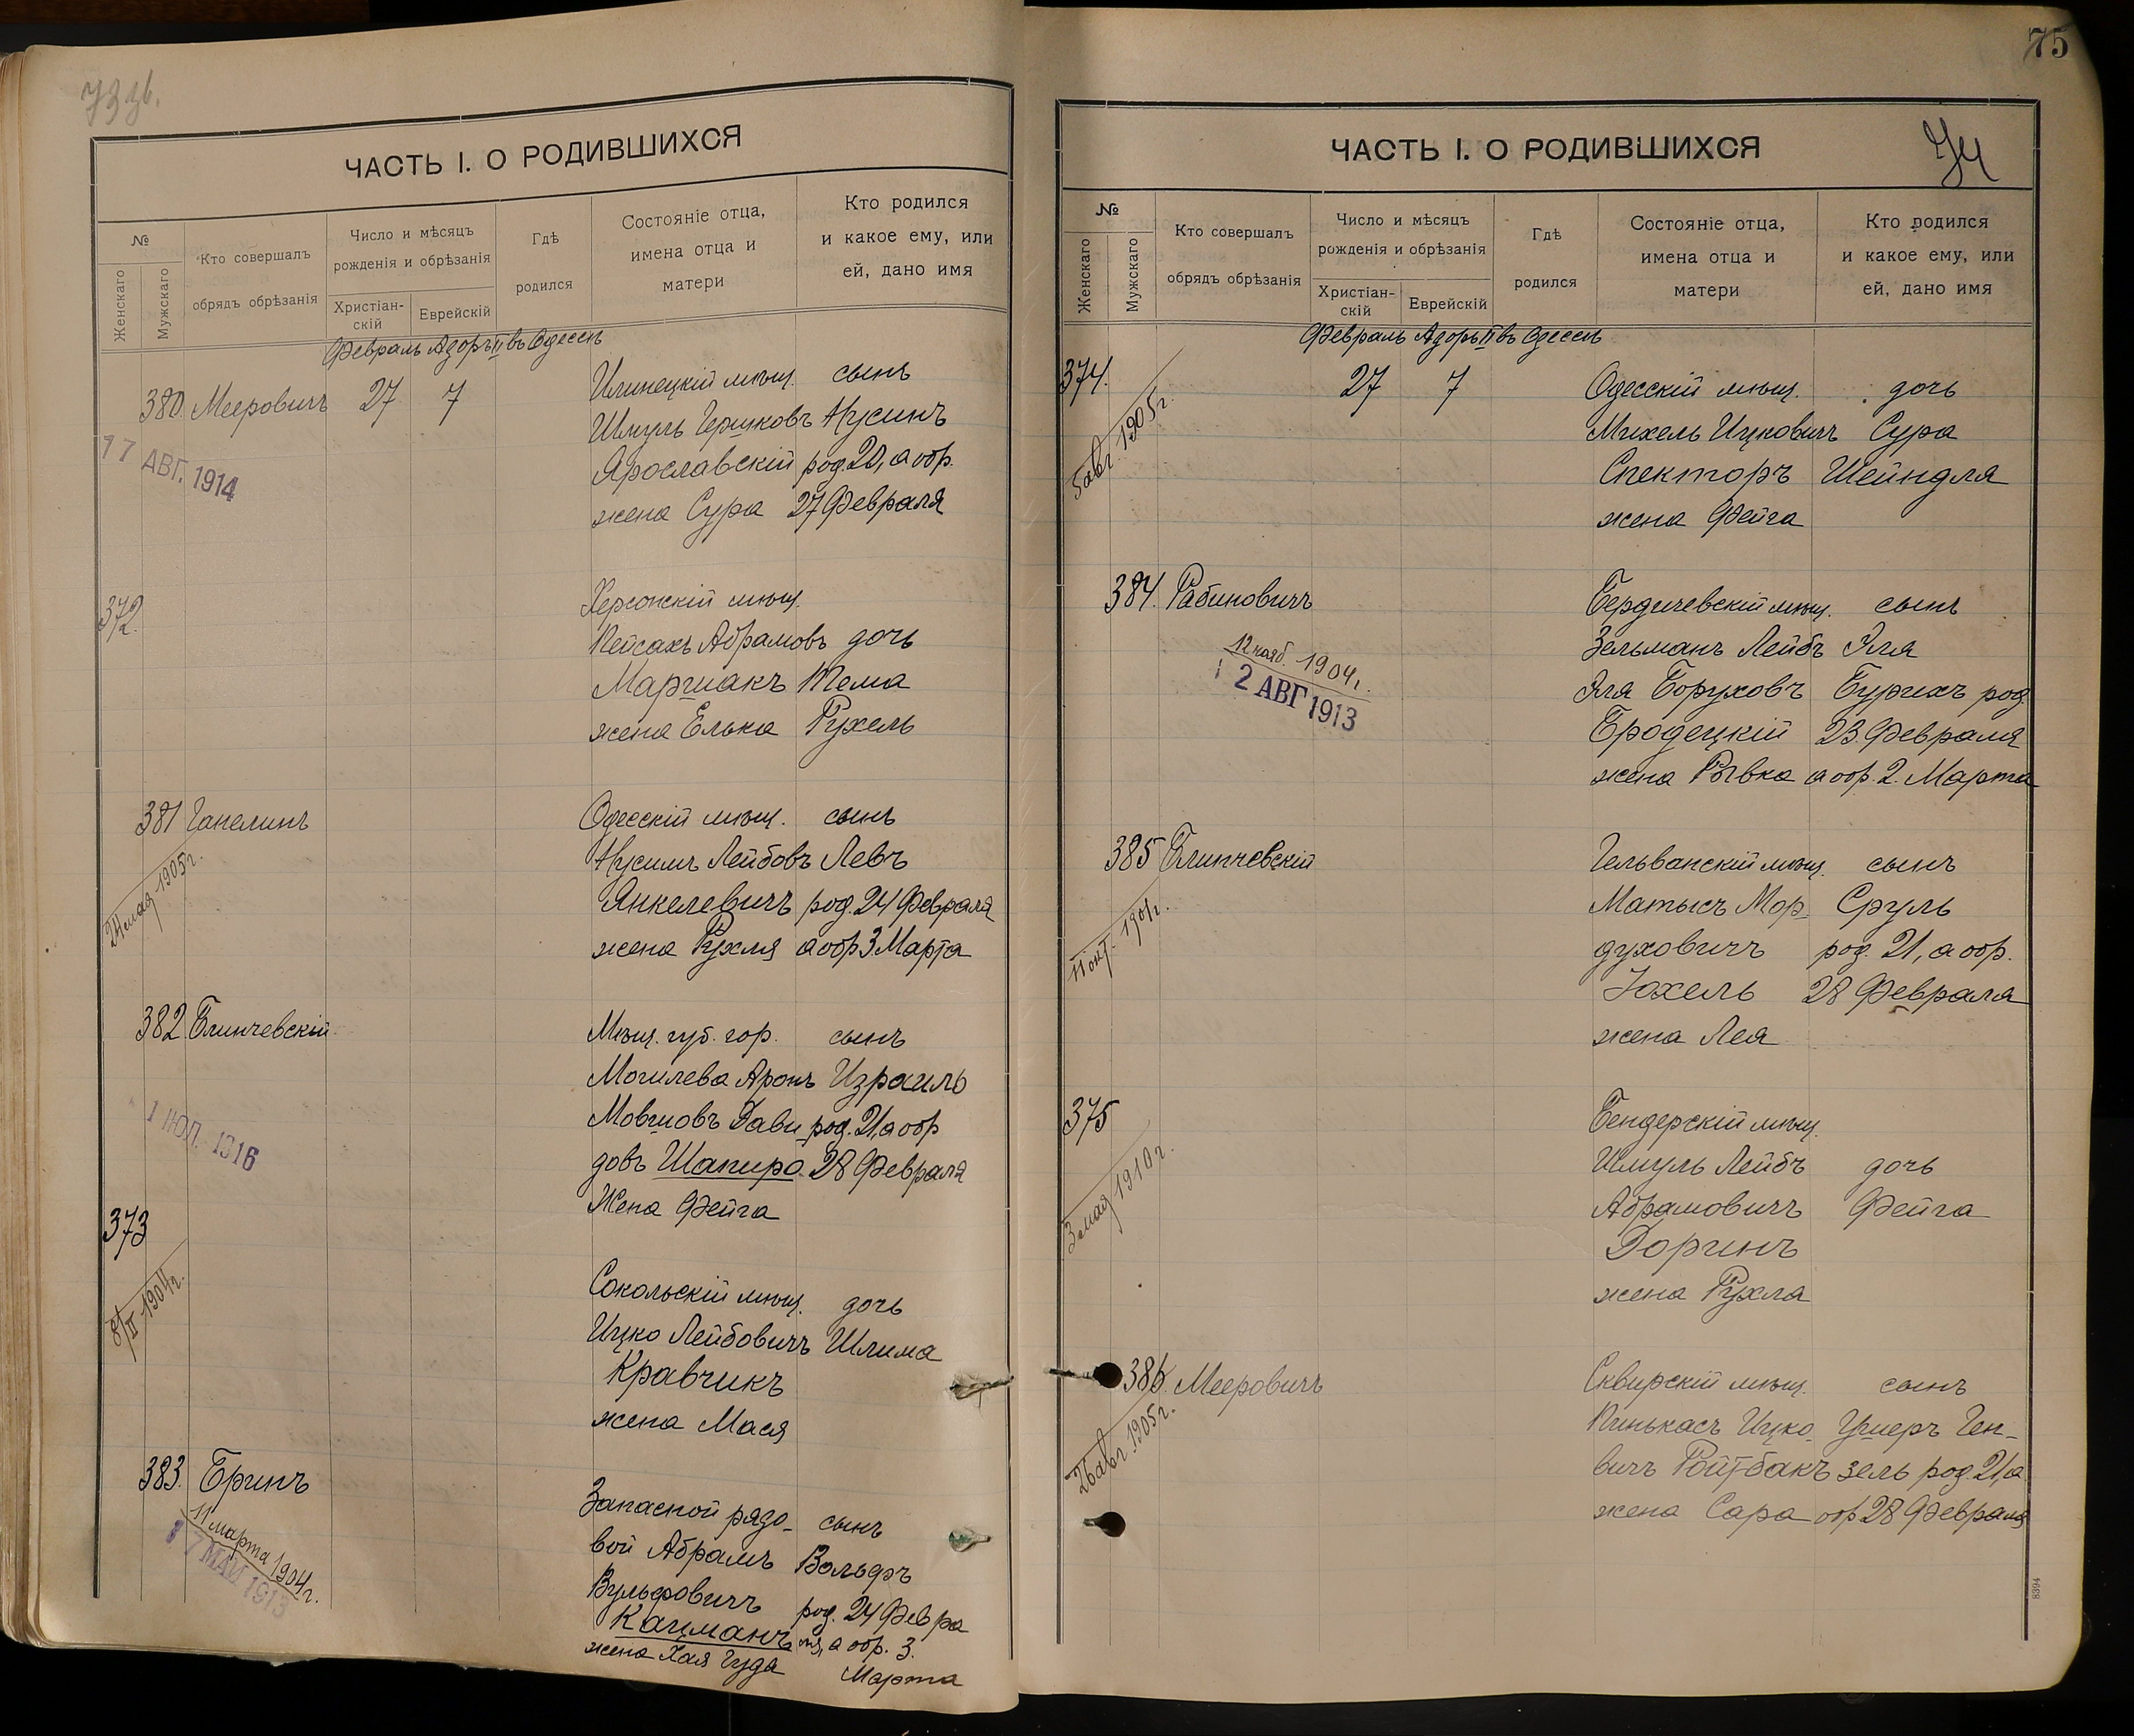 73 зв.
ЧАСТЬ I. О РОДИВШИХСЯ
№
Женскаго
Мужскаго
Кто совершалъ
обрядъ обрѣзанія
Число и мѣсяцъ
рожденія и обрѣзанія
Христіан-
скій
Еврейскій
Гдѣ
родился
Состояніе отца,
имена отца и
матери
Кто родился
и какое ему, или
ей, дано имя
Февраль Адоръ II въ Одессѣ
380. Мееровичъ 27 7 Илинецкій мѣщ. сынъ
17 АВГ. 1914
Шмуль Гершковъ Нусинъ
Ярославскій род. 20, а обр.
жена Сура 27 Февраля
372.
Херсонскій мѣщ.
Пейсахъ Абрамовъ дочь
Маршакъ Тема
жена Елька Рухель
381 Ганелинъ Одесскій мѣщ. сынъ
24 мая 1905 г.
Нусимъ Лейбовъ Левъ
Янкелевичъ род. 24 Февраля
жена Рухля а обр 3 Марта
382. Блинчевскій Мѣщ. губ. гор. сынъ
Могилева Аронъ Израиль
1 ИЮЛ. 1916
Мовшовъ Дави род. 21, а обр
довъ Шапиро 28 Февраля
Жена Фейга
373
8/II 1904 г.
Сокольскій мѣщ. дочь
Ицко Лейбовичъ Шлима
Кравчикъ
жена Мася
383. Бринъ Запасной рядо- сынъ
11 марта 1904 г.
17 МАЙ 1913
вой Абрамъ Вольфъ
Вульфовичъ род. 24 Февра
Кацманъ ля, а обр. 3.
жена Хая Гуда Марта
75
ЧАСТЬ I. О РОДИВШИХСЯ
74
№
Женскаго
Мужскаго
Кто совершалъ
обрядъ обрѣзанія
Число и мѣсяцъ
рожденія и обрѣзанія
Христіан-
скій
Еврейскій
Гдѣ
родился
Состояніе отца,
имена отца и
матери
Кто родился
и какое ему, или
ей, дано имя
Февраль Адоръ II въ Одессѣ
374. 27 7 Одесскій мѣщ. дочь
5 авг. 1905 г.
Михель Ицковичъ Сура
Спекторъ Шейндля
жена Фейга
384. Рабиновичъ Бердичевскій мѣщ. сынъ
12 нояб. 1904 г.
2 АВГ 1913
Зельманъ Лейбъ Эля
Эля Боруховъ Бурихъ род.
Бродецкій 23. Февраля
жена Рывка а обр. 2. Марта
385 Блинчевскій Гельванскій мѣщ. сынъ
11 окт. 1904 г.
Матысъ Мор- Сруль
духовичъ род. 21, а обр.
Іохель 28 Февраля
жена Лея
375
3 мая 1910 г.
Бендерскій мѣщ.
Шмуль Лейбъ дочь
Абрамовичъ Фейга
Доринъ
жена Рухла
386. Мееровичъ Сквирскій мѣщ. сынъ
26 авг. 1905 г.
Пинькасъ Ицко- Ушеръ Ген-
вичъ Ройтбакъ зель род. 21, а
жена Сара обр 28 Февраля
8394